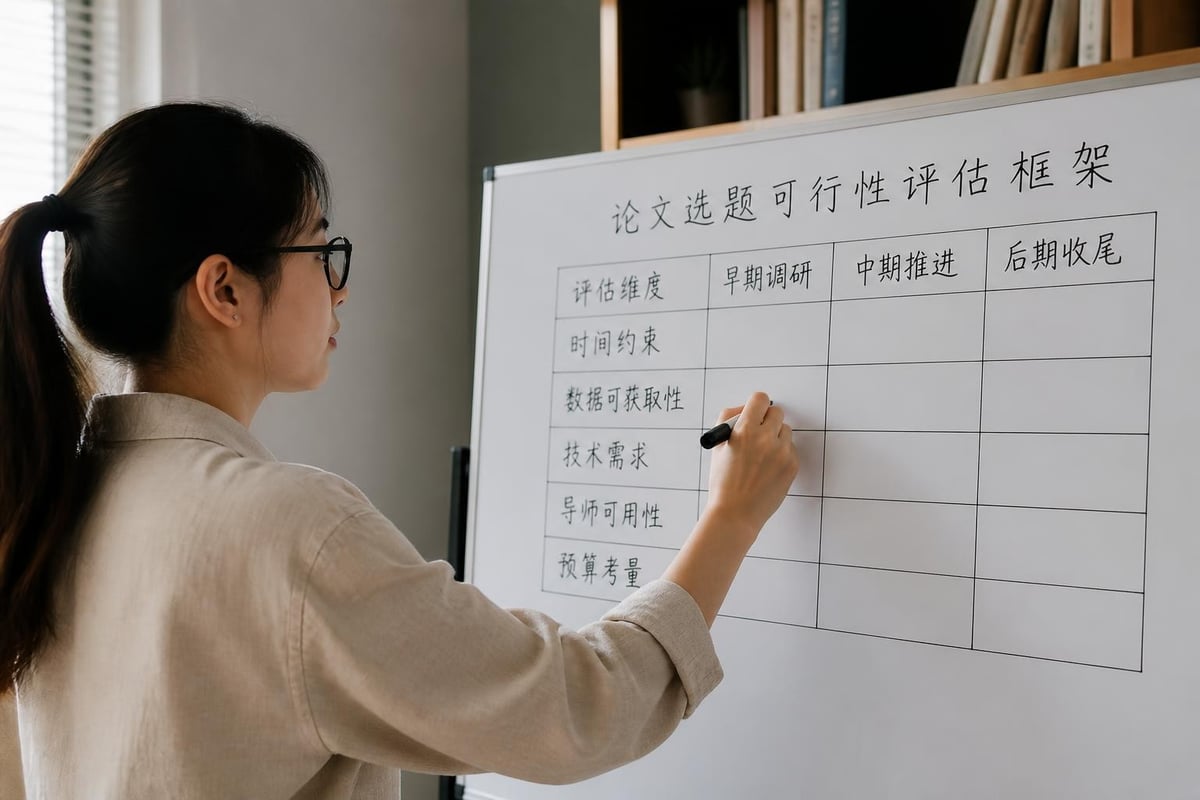 论文选题可行性评估框架
评估维度 早期调研 中期推进 后期收尾
时间约束
数据可获取性
技术需求
导师可用性
预算考量